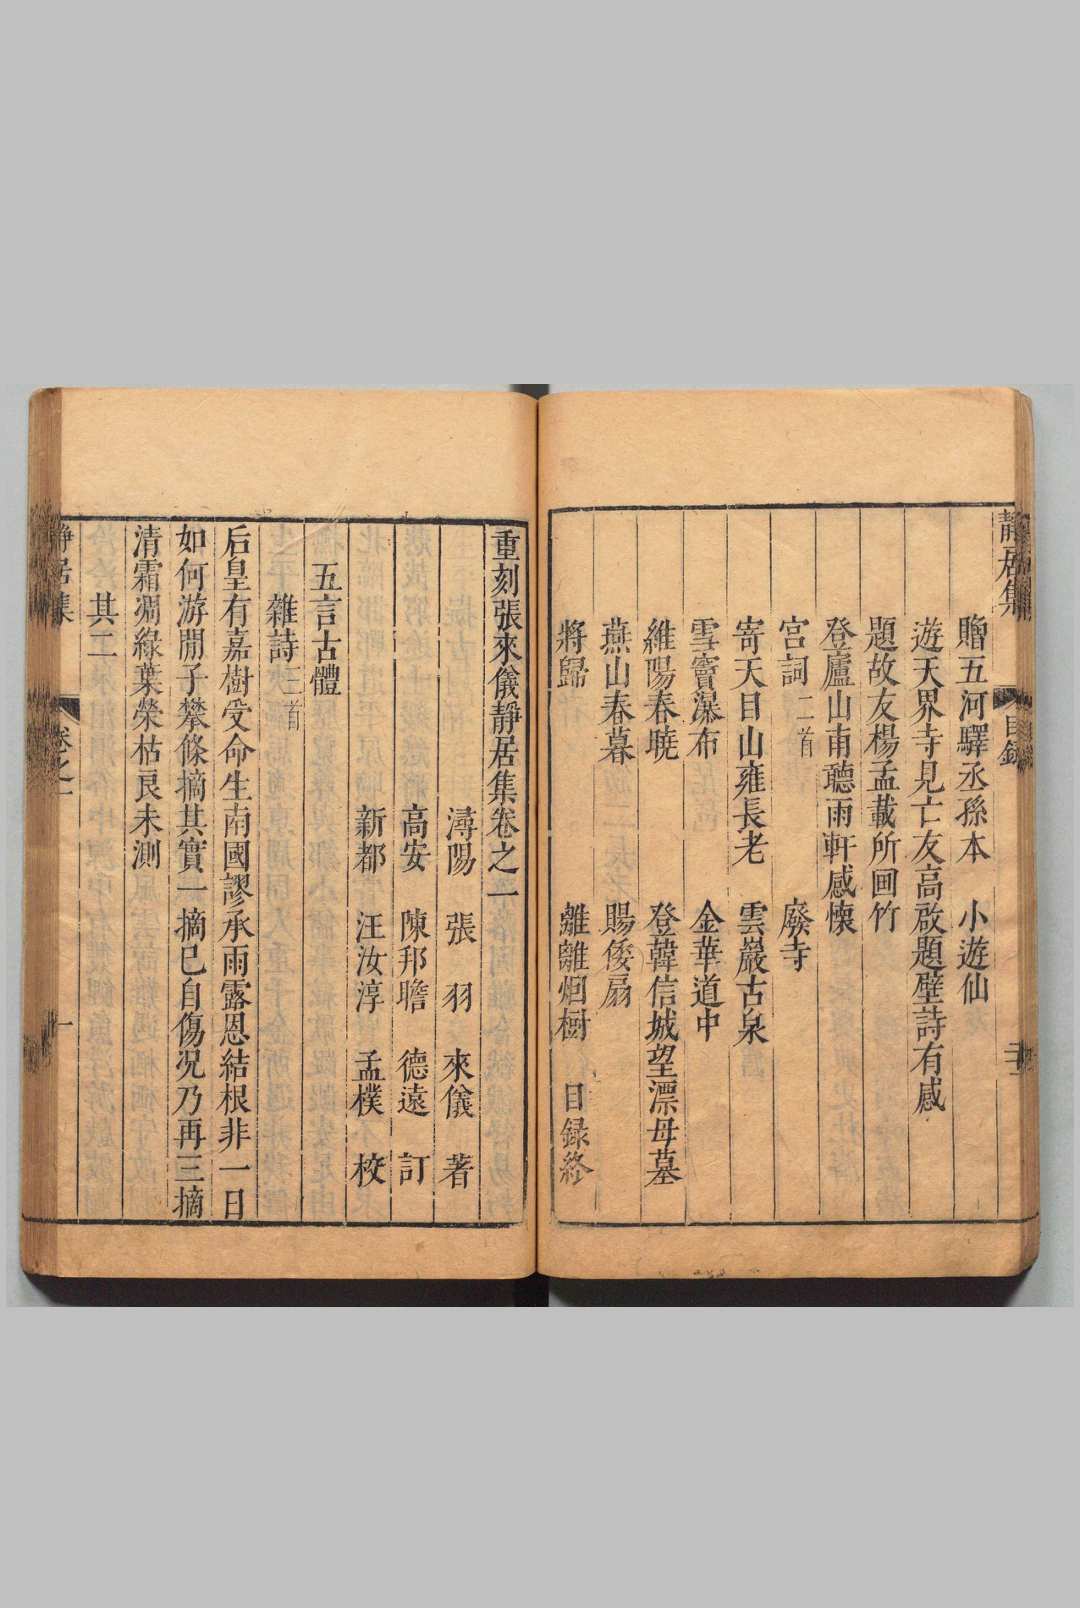 靜居集 目錄
贈五河驛丞孫本 小遊仙
遊天界寺見亡友高啟題壁詩有感
題故友楊孟載所画竹
登廬山甫聽雨軒感懷
宫詞二首 廢寺
寄天目山雍長老 雲巖古泉
雪竇瀑布 金華道中
維陽春曉 登韓信城望漂母墓
燕山春暮 賜倭扇
將歸 離離烟樹 目録終
重刻張來儀靜居集卷之一
潯陽 張羽 來儀 著
高安 陳邦瞻 德遠 訂
新都 汪汝淳 孟樸 校
五言古體
雜詩三首
后皇有嘉樹受命生南國謬承雨露恩結根非一日
如何游閒子攀條摘其實一摘巳自傷况乃再三摘
清霜凋綠葉榮枯良未測
其二
靜居集 卷之一 一